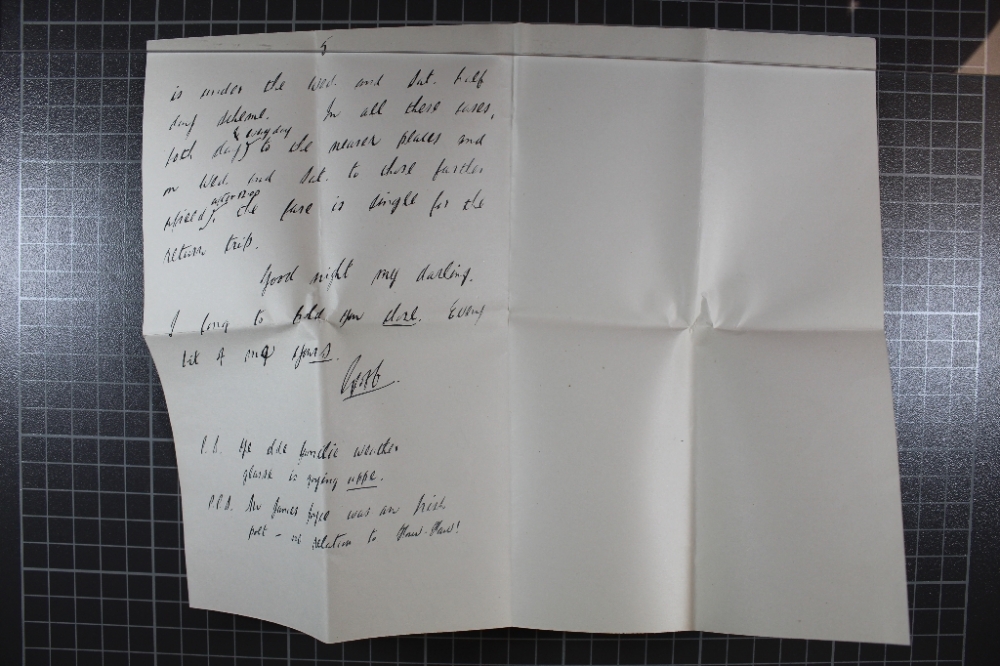 5
is under the Wed. and Sat. half
day scheme. In all these cases,
both day & every day to the nearer places and
on Wed. and Sat. to those further
afield, the fare is single for the
return trip.
Good night my darling.
I long to hold you close. Every
bit of me yours.
P.S. Ye olde familie weather
glasse is goying uppe.
P.P.S. Mr James Joyce was an Irish
poet – no relation to Haw-Haw!